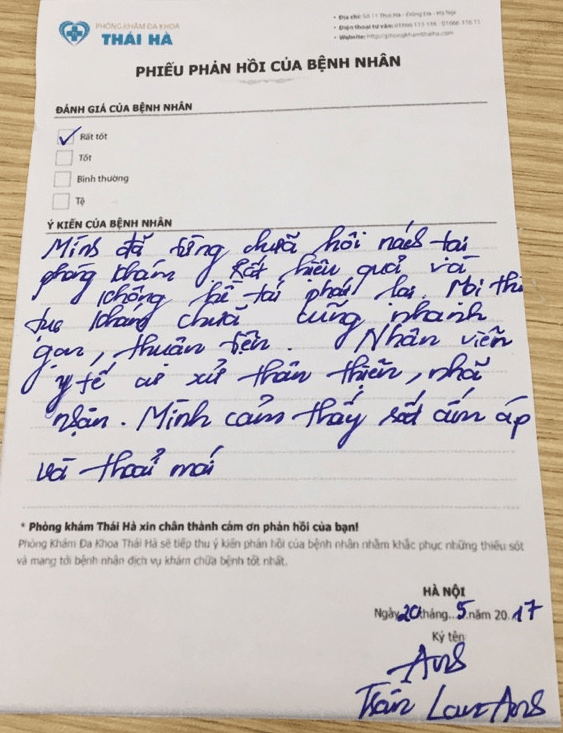 PHÒNG KHÁM ĐA KHOA
THÁI HÀ
• Địa chỉ: Số 11 Thái Hà - Đống Đa - Hà Nội
• Điện thoại tư vấn:
• Website: http://phongkhamthaiha.com
PHIẾU PHẢN HỒI CỦA BỆNH NHÂN
ĐÁNH GIÁ CỦA BỆNH NHÂN
Rất tốt
Tốt
Bình thường
Tệ
Ý KIẾN CỦA BỆNH NHÂN
Mình đã từng chữa hôi nách tại
phòng khám rất hiệu quả và
không hề tái phát lại. Mọi thủ
tục khám chữa cũng nhanh
gọn, thuận tiện. Nhân viên
y tế cư xử thân thiện, nhã
nhặn. Mình cảm thấy rất ấm áp
và thoải mái
* Phòng khám Thái Hà xin chân thành cám ơn phản hồi của bạn!
Phòng Khám Đa Khoa Thái Hà sẽ tiếp thu ý kiến phản hồi của bệnh nhân nhằm khắc phục những thiếu sót
và mang tới bệnh nhân dịch vụ khám chữa bệnh tốt nhất.
HÀ NỘI
Ngày 20 tháng..5.năm 20.17
Ký tên
Anh
Trần Lan Anh